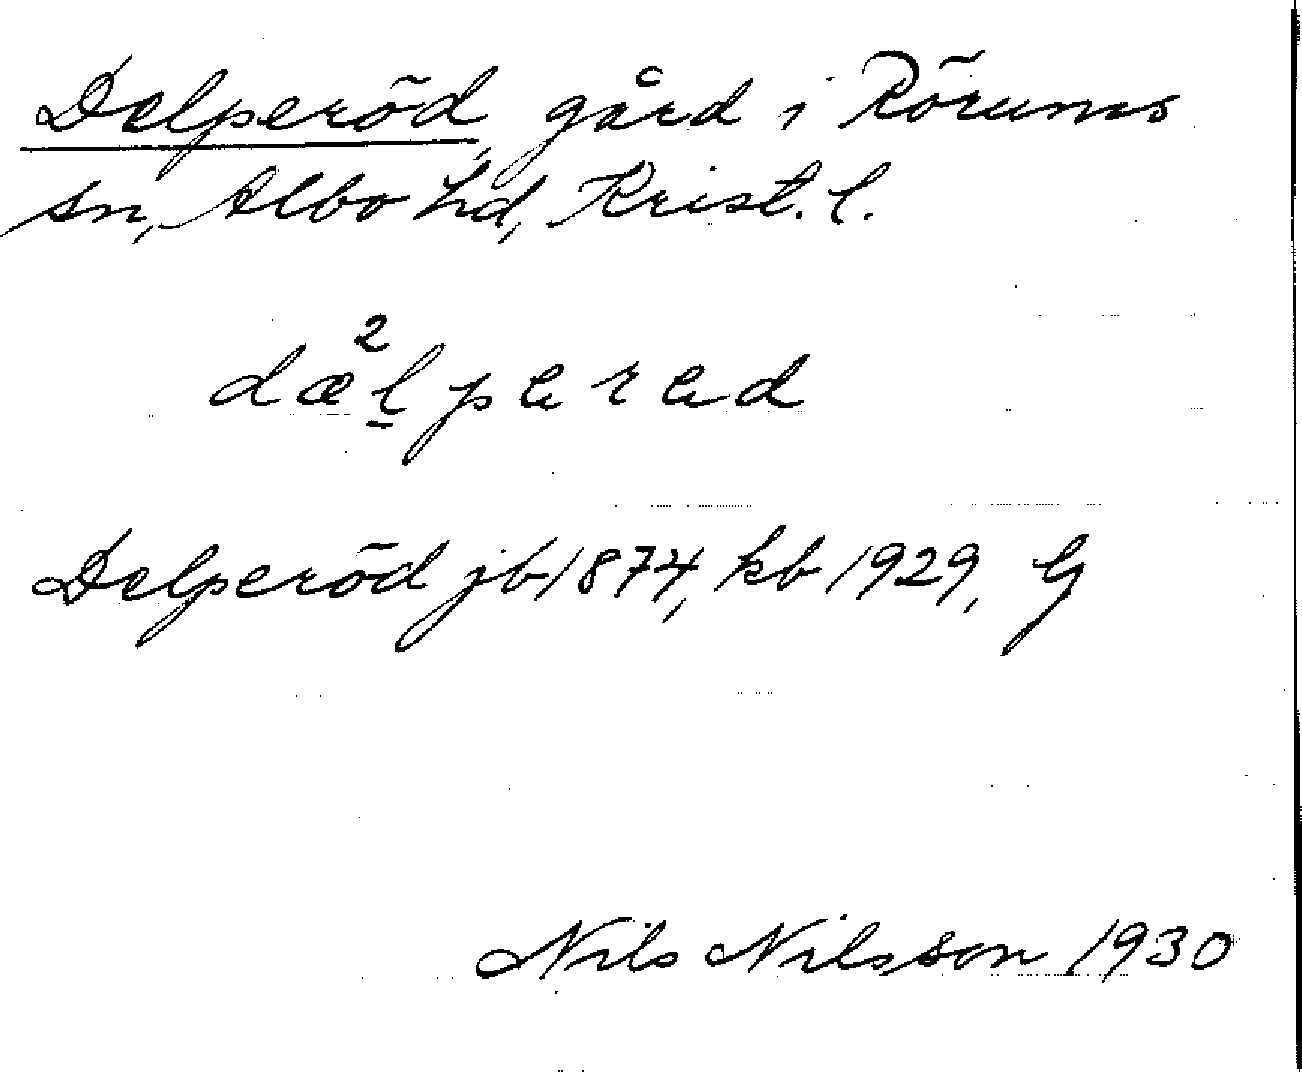 Delperöd, gård i Rörums
sn, Albo hd, Krist. l.
dæ²l̲pered
Delperöd jb 1874, kb 1929, G
Nils Nilsson 1930